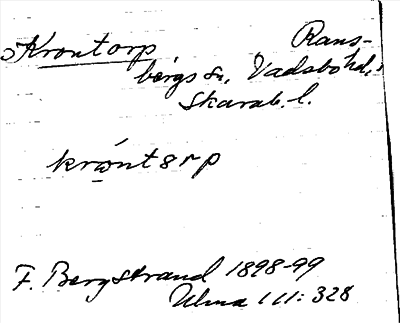 Krontorp Rans-
bergs sn, Vadsbo hd,
Skarab. l.
króntərp
F. Bergstrand 1898-99
Ulma 111: 328